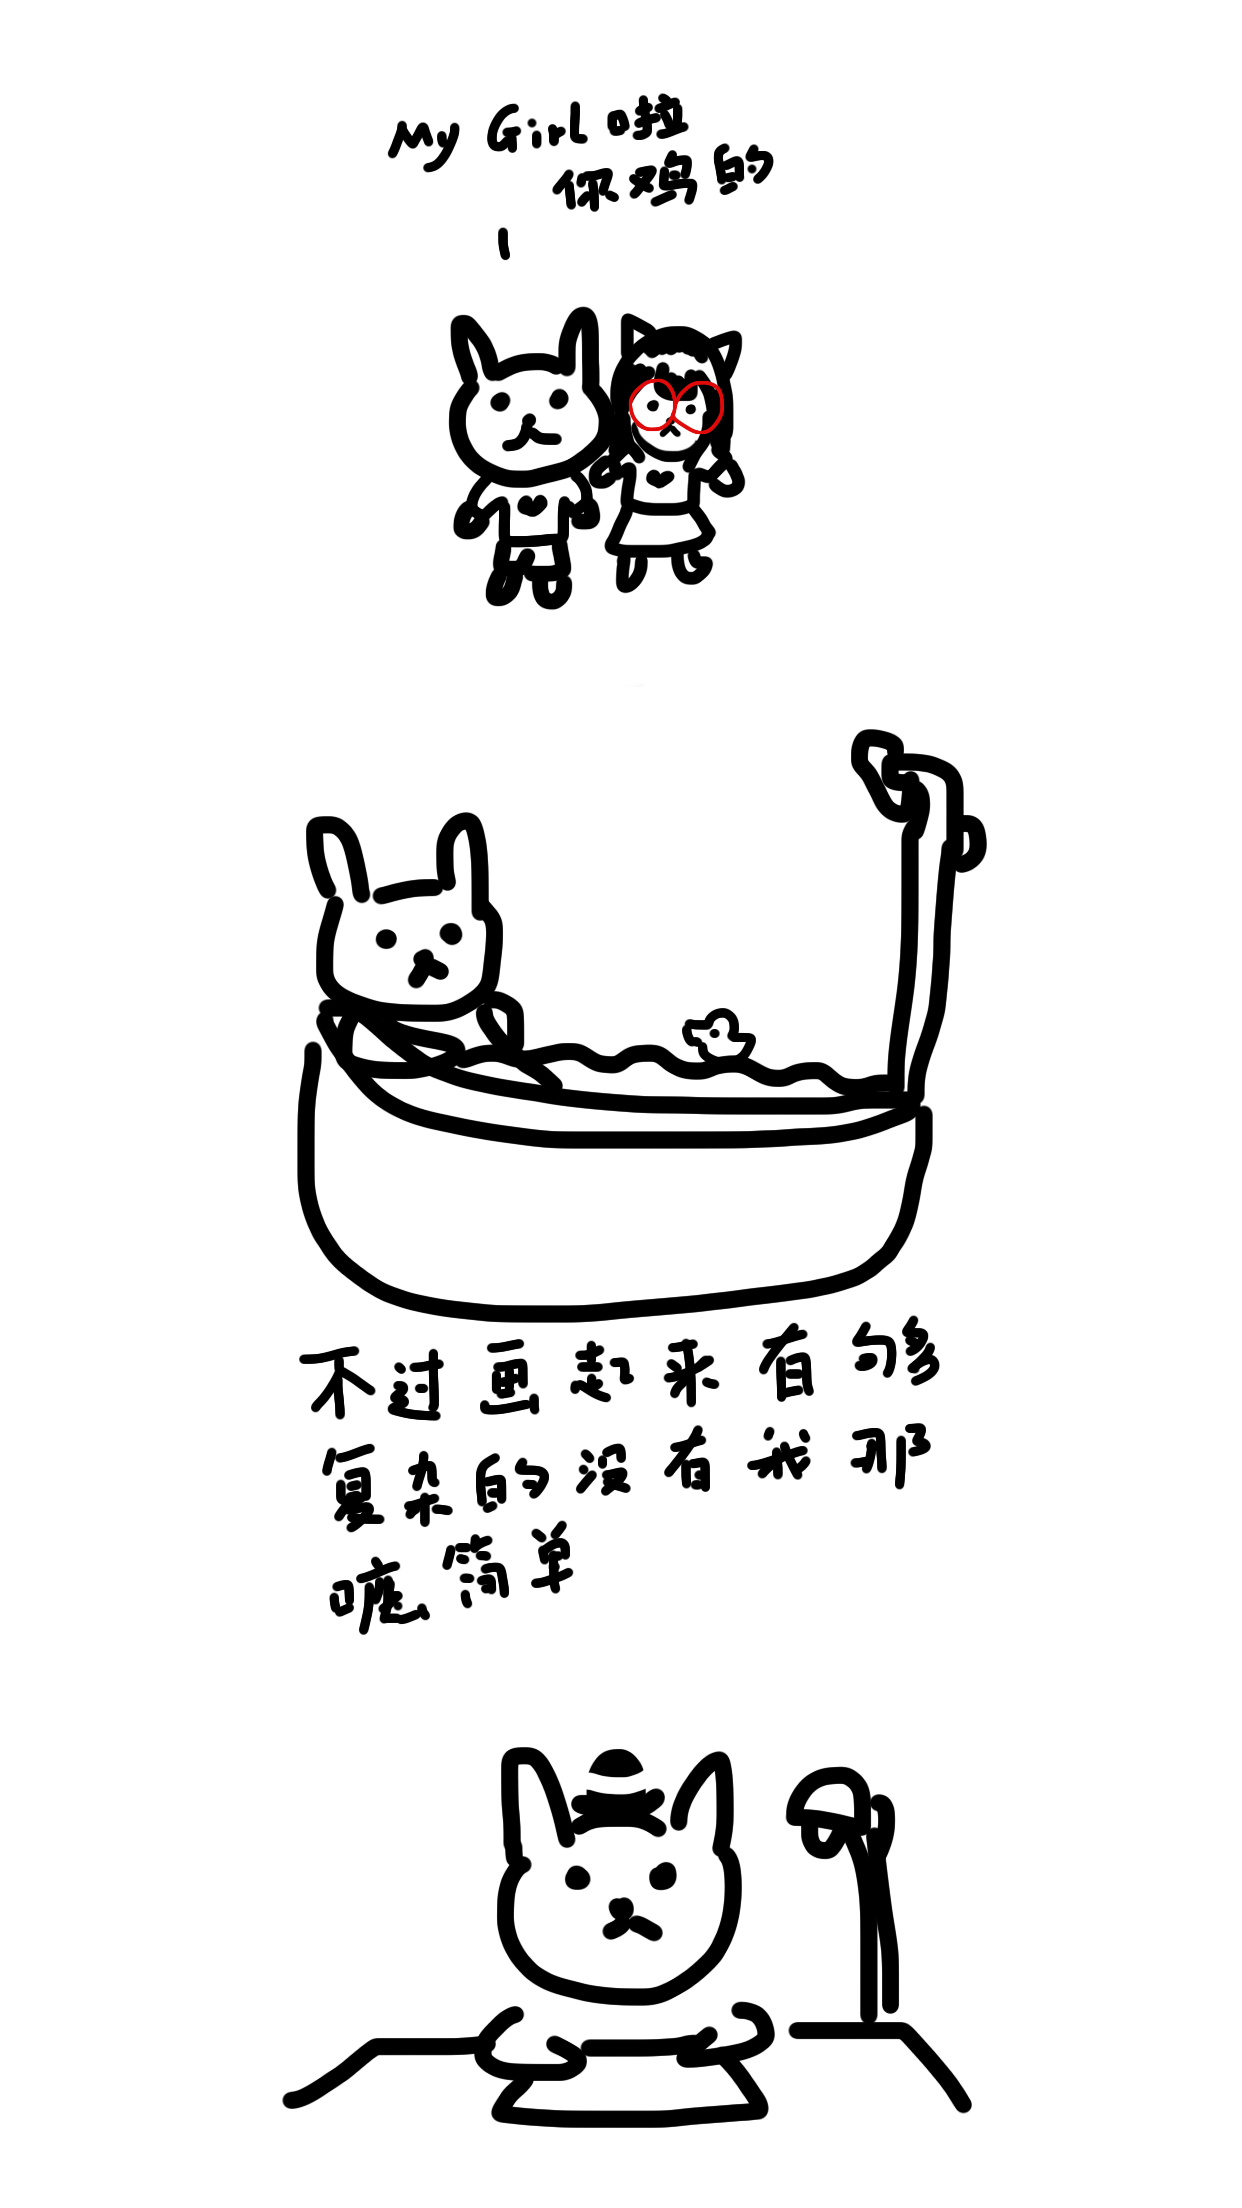 My Girl 啦
你鸡的
不过画起来有够
复杂的没有我那
嚒简单